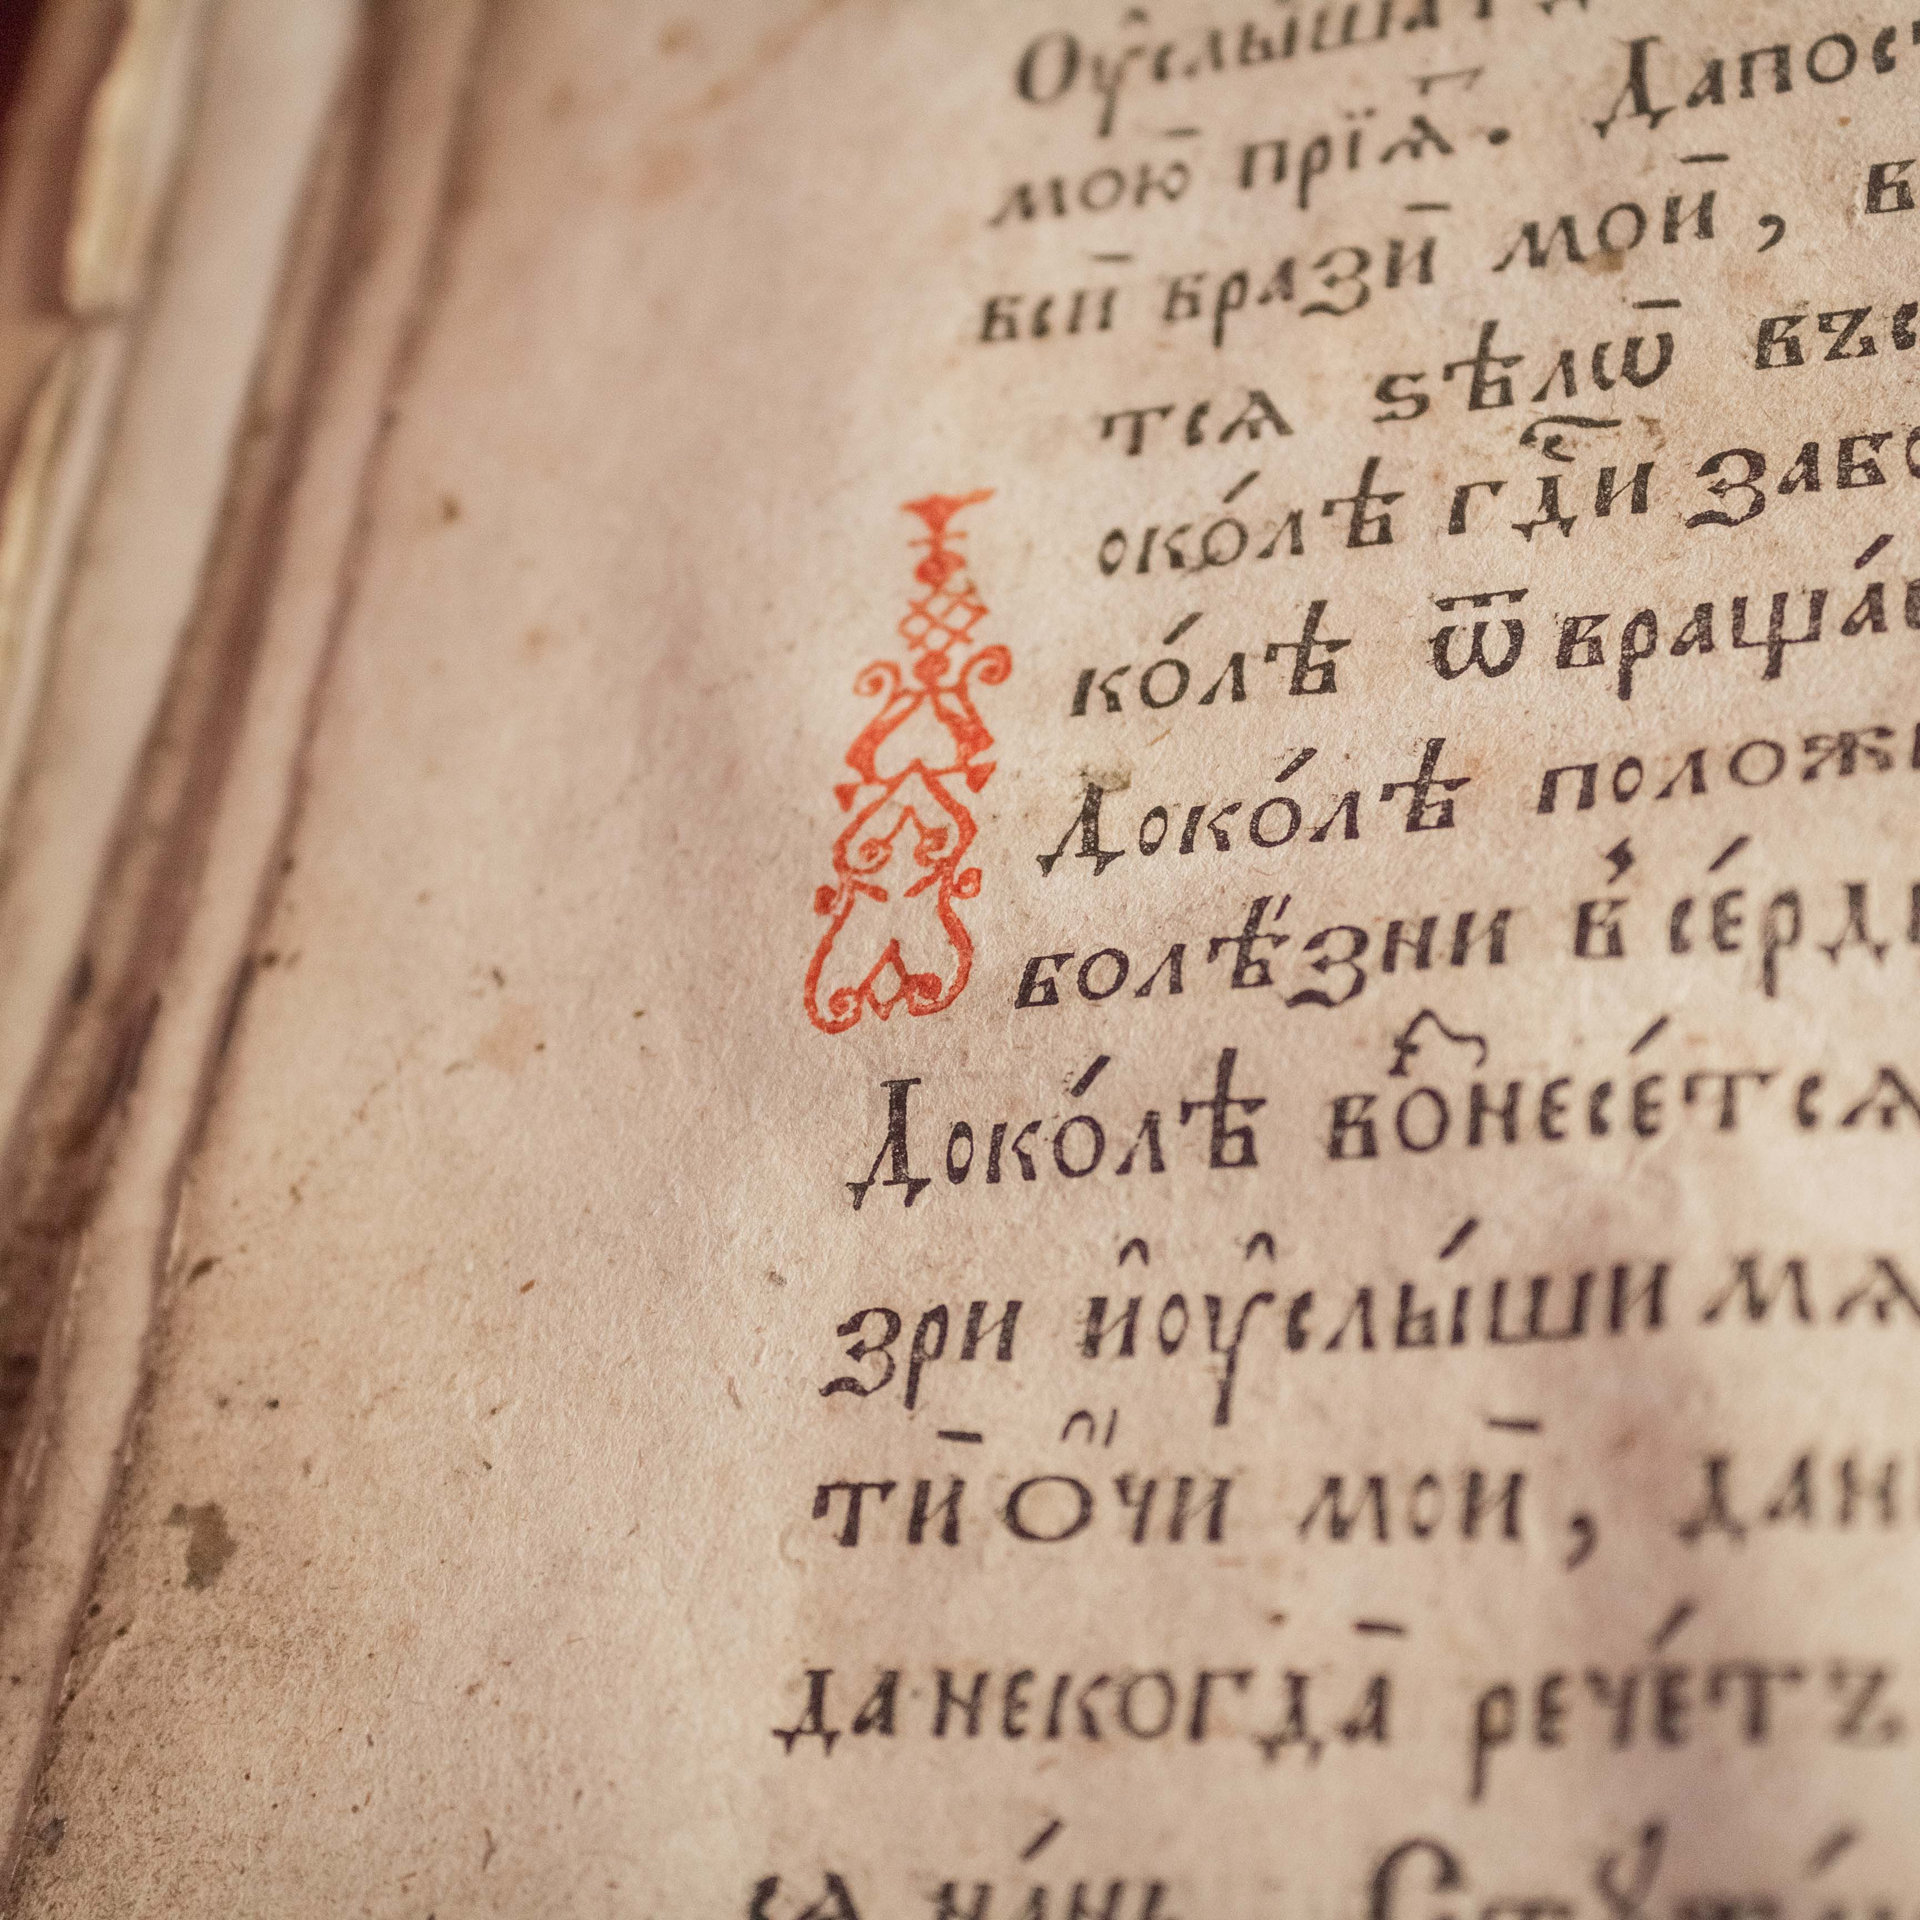 Оу҆слы́ша гд
мою̀ прїѧ̀т. Дапост
всѝ вразѝ моѝ, в
тсѧ ѕѣлѡ̀ въс
око́лѣ гдⷭ҇и забо
ко́лѣ ѿвраща́е
Доко́лѣ полож
болѣ̈зни в̾ се́рд
Доко́лѣ возⷥнесе́тсѧ
зри и҆оу҆слы́ши мѧ
тѝ ѻ҆́чи моѝ, дан
данекогда̀ рече́тъ